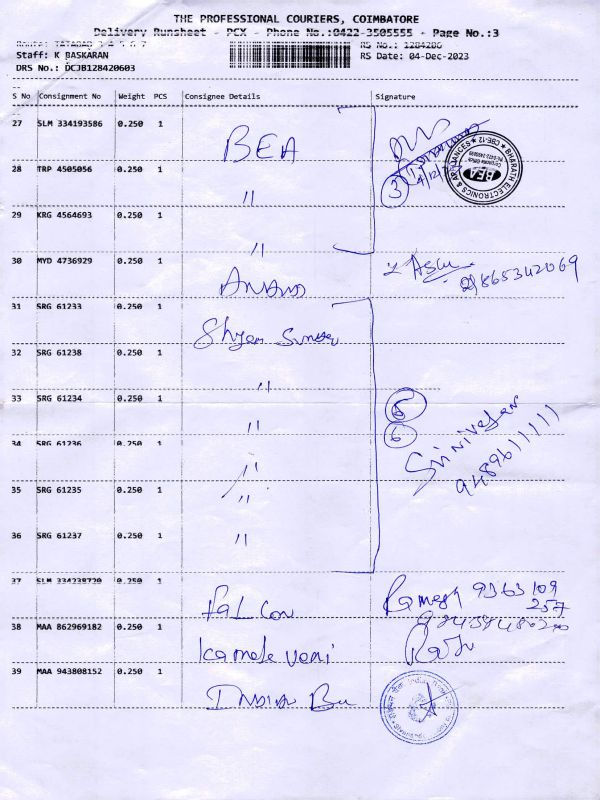 THE PROFESSIONAL COURIERS, COIMBATORE
Delivery Runsheet - PCX - Phone No.:0422-3505555 - Page No.:3
Staff: K BASKARAN
DRS No.: DCJB128420603
RS No.: 1284206
RS Date: 04-Dec-2023
S No Consignment No Weight PCS Consignee Details Signature
27 SLM 334193586 0.250 1 BEA
28 TRP 4505056 0.250 1 " 3
BHARATH ELECTRONICS & APPLIANCES
CBE-12
BEA
29 KRG 4564693 0.250 1 "
30 MYD 4736929 0.250 1 ANAND
9865342069
31 SRG 61233 0.250 1 Shyam Sundar
32 SRG 61238 0.250 1 "
33 SRG 61234 0.250 1 " 6
34 SRG 61236 0.250 1 " 6
Srinivasan
9489611111
35 SRG 61235 0.250 1 "
36 SRG 61237 0.250 1 "
37 SLM 334238720 0.250 1 Falcon
Ramesh 9363109
257
38 MAA 862969182 0.250 1 Kamaleveni
39 MAA 943808152 0.250 1